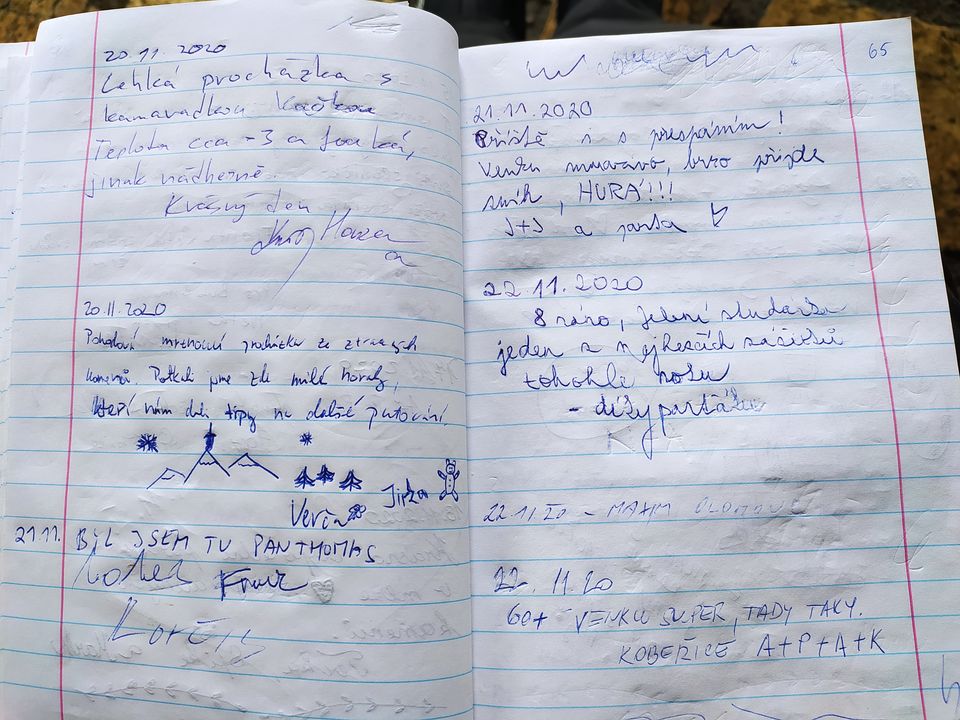 20.11.2020
Lehká procházka s
kamarádkou Kačkou
Teplota cca -3 a fouká,
jinak nádherně.
Krásný den
20.11.2020
Pohodová mrznoucí procházka ze ztracených
kamenů. Potkali jsme zde milé horaly,
kteří nám dali tipy na další putování.
Verča
Jirka
21.11. BYL JSEM TU PAN THOMAS
65
21.11.2020
Příště i s přespáním!
Venku mrazivo, brzo přijde
sníh, HURÁ!!!
J+J a parta
22.11.2020
8 ráno, Jelení studánka
jeden z nejhezčích začátků
tohohle roku
- díky parťáku
22.11.20 - MAHM OLOMOUC
22.11.20
60+ VENKU SUPER, TADY TAKY.
KOBEŘICE A+P+A+K